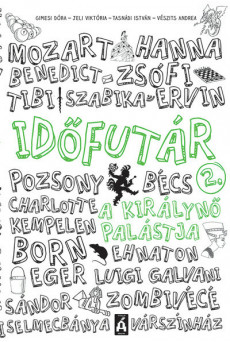 GIMESI DÓRA – ZELI VIKTÓRIA – TASNÁDI ISTVÁN – VÉSZITS ANDREA
MOZART HANNA
BENEDICT ZSÓFI
TIBI SZABIKA ERVIN
IDŐFUTÁR
POZSONY BÉCS 2.
CHARLOTTE A KIRÁLYNŐ
KEMPELEN PALÁSTJA
BORN EHNATON
EGER LUIGI GALVANI
SÁNDOR ZOMBIVÉCÉ
SELMECBÁNYA VÁRSZÍNHÁZ